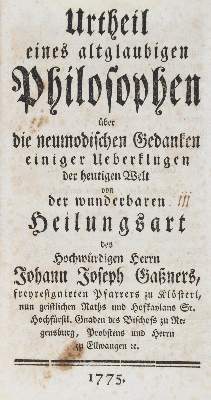 Urtheil
eines altglaubigen
Philosophen
über
die neumodischen Gedanken
einiger Ueberklugen
der heutigen Welt
von
der wunderbaren
Heilungsart
des
Hochwürdigen Herrn
Johann Joseph Gaßners,
freyresignirten Pfarrers zu Klösterl,
nun geistlichen Raths und Hofkaplans Sr.
Hochfürstl. Gnaden des Bischofs zu Re-
gensburg, Probstens und Herrn
zu Ellwangen ꝛc.
1775.